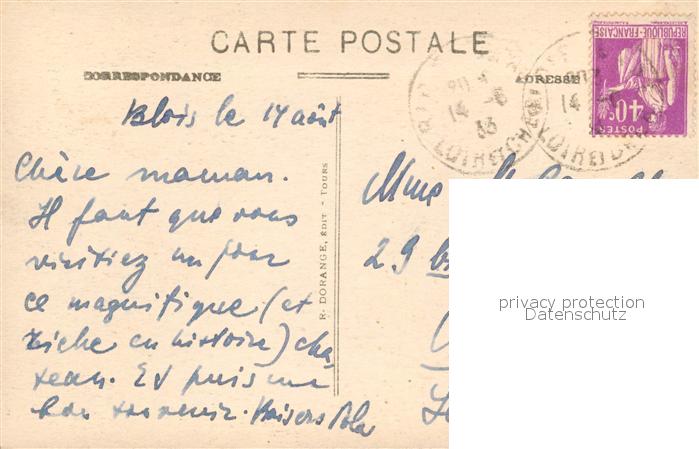 CARTE POSTALE
CORRESPONDANCE
ADRESSE
REPUBLIQUE-FRANÇAISE
40c
POSTES
14 -8
33
LOIR & CHER
14
LOIR &
Blois le 14 août
Chère maman.
Il faut que vous
visitiez un jour
ce magnifique (et
riche en histoire) châ
teau. Et puis un
bon souvenir. Baisers
R. DORANGE, ÉDIT - TOURS
Mme
29 bis
privacy protection
Datenschutz